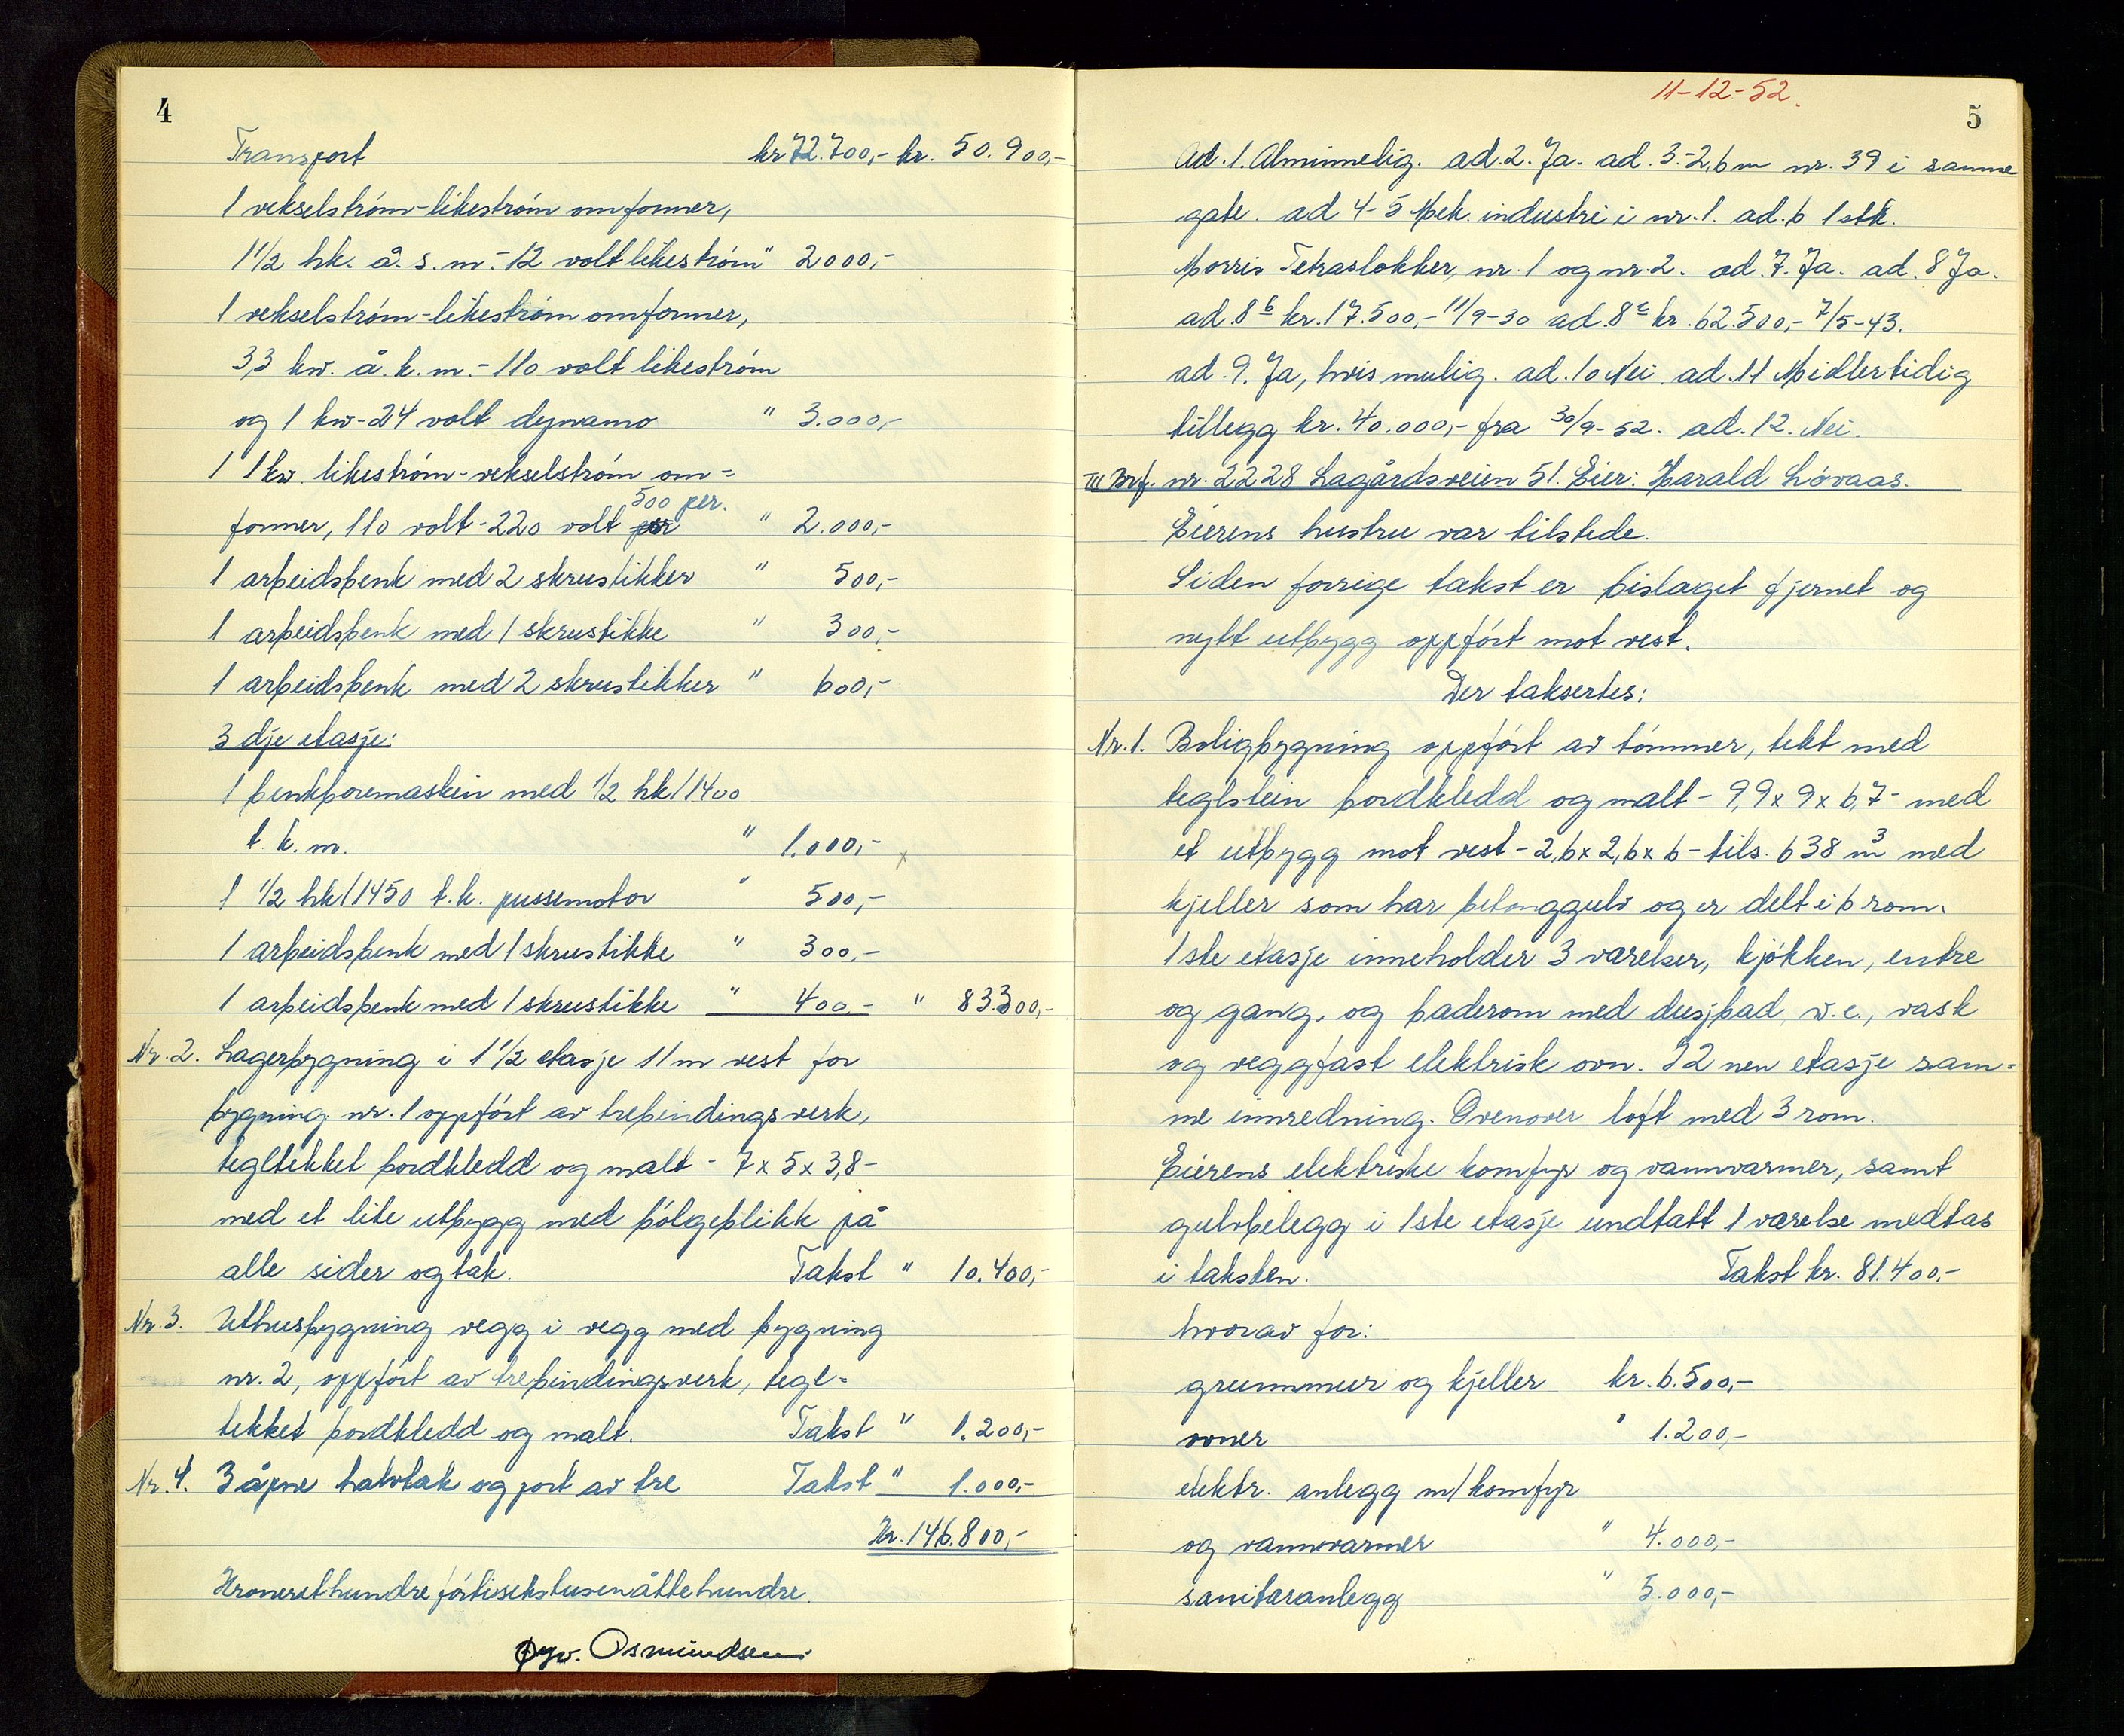 4
Transport kr 72.700,- kr. 50.900,-
1 vekselstrøm-likestrøm omformer,
1 1/2 hk. å. s. m.- 12 volt likestrøm " 2000,-
1 vekselstrøm-likestrøm omformer,
3,3 kw. å. k. m.- 110 volt likestrøm
og 1 kw-24 volt dynamo " 3.000,-
1 1 kw. likestrøm-vekselstrøm om=
500 per.
former, 110 volt-220 volt " 2.000,-
1 arbeidsbenk med 2 skrustikker " 500,-
1 arbeidsbenk med 1 skrustikke " 300,-
1 arbeidsbenk med 2 skrustikker " 600,-
3 dje etasje:
1 benkboremaskin med 1/2 hk/1400
t. k. m. " 1.000,- x
1 1/2 hk/1450 t.k. pussemotor " 500,-
1 arbeidsbenk med 1 skrustikke " 300,-
1 arbeidsbenk med 1 skrustikke " 400,- " 83.300,-
Nr. 2. Lagerbygning i 1 1/2 etasje 11 m vest for
bygning nr. 1 oppført av trebindingsverk,
tegltekket bordkledd og malt - 7 x 5 x 3,8 -
med et lite utbygg med bølgeblikk på
alle sider og tak. Takst " 10.400,-
Nr. 3. Uthusbygning vegg i vegg med bygning
nr. 2, oppført av trebindingsverk, tegl=
tekket bordkledd og malt. Takst " 1.200,-
Nr. 4. 3 åpne halvtak og port av tre Takst " 1.000,-
Kr. 146.800,-
Kroneretthundreførtisekstusenåttehundre.
Osmundsen
11-12-52.
5
Ad. 1. Alminnelig. ad. 2. Ja. ad. 3.-2,6 m nr. 39 i samme
gate. ad 4-5 Mek. industri i nr. 1. ad. 6 1 stk.
Morris Tetraslokker, nr. 1 og nr. 2. ad. 7. Ja. ad. 8 Ja.
ad. 8 b kr. 17.500,- 11/9-30 ad. 8 c kr. 62.500,- 7/5-43.
ad. 9. Ja, hvis mulig. ad. 10 Nei. ad. 11 Midlertidig
tillegg kr. 40.000,- fra 30/9-52. ad. 12. Nei.
III Brf. nr. 2228 Lagårdsveien 51. Eier: Harald Løvaas.
Eierens hustru var tilstede.
Siden forrige takst er bislaget fjernet og
nytt utbygg oppført mot vest.
Der taksertes:
Nr. 1. Boligbygning oppført av tømmer, tekt med
teglstein bordkledd og malt - 9,9 x 9 x 6,7 - med
et utbygg mot vest - 2,6 x 2,6 x 6 - tils. 638 m3 med
kjeller som har betonggulv og er delt i 6 rom.
1ste etasje inneholder 3 værelser, kjøkken, entre
og gang. og baderom med dusjbad, w.c., vask
og veggfast elektrisk ovn. I 2 nen etasje sam=
me innredning. Ovenover loft med 3 rom.
Eierens elektriske komfyr og vannvarmer, samt
gulvbelegg i 1ste etasje undtatt 1 værelse medtas
i taksten. Takst kr. 81.400,-
hvorav for:
grunnmur og kjeller kr. 6.500,-
ovner " 1.200,-
elektr. anlegg m/komfyr
og vannvarmer " 4.000,-
sanitæranlegg " 5.000,-